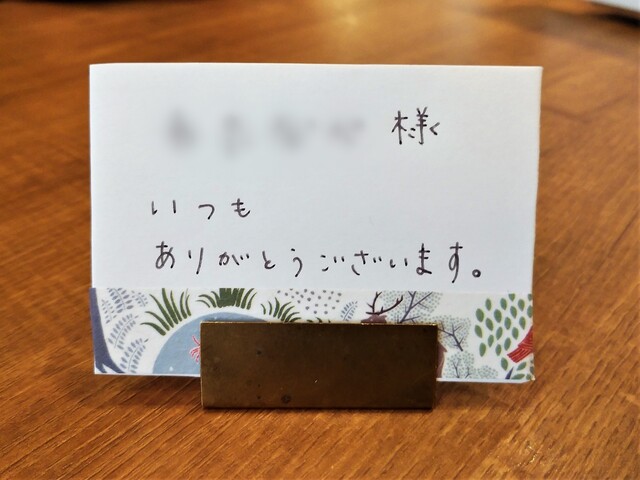 様
いつも
ありがとうございます。